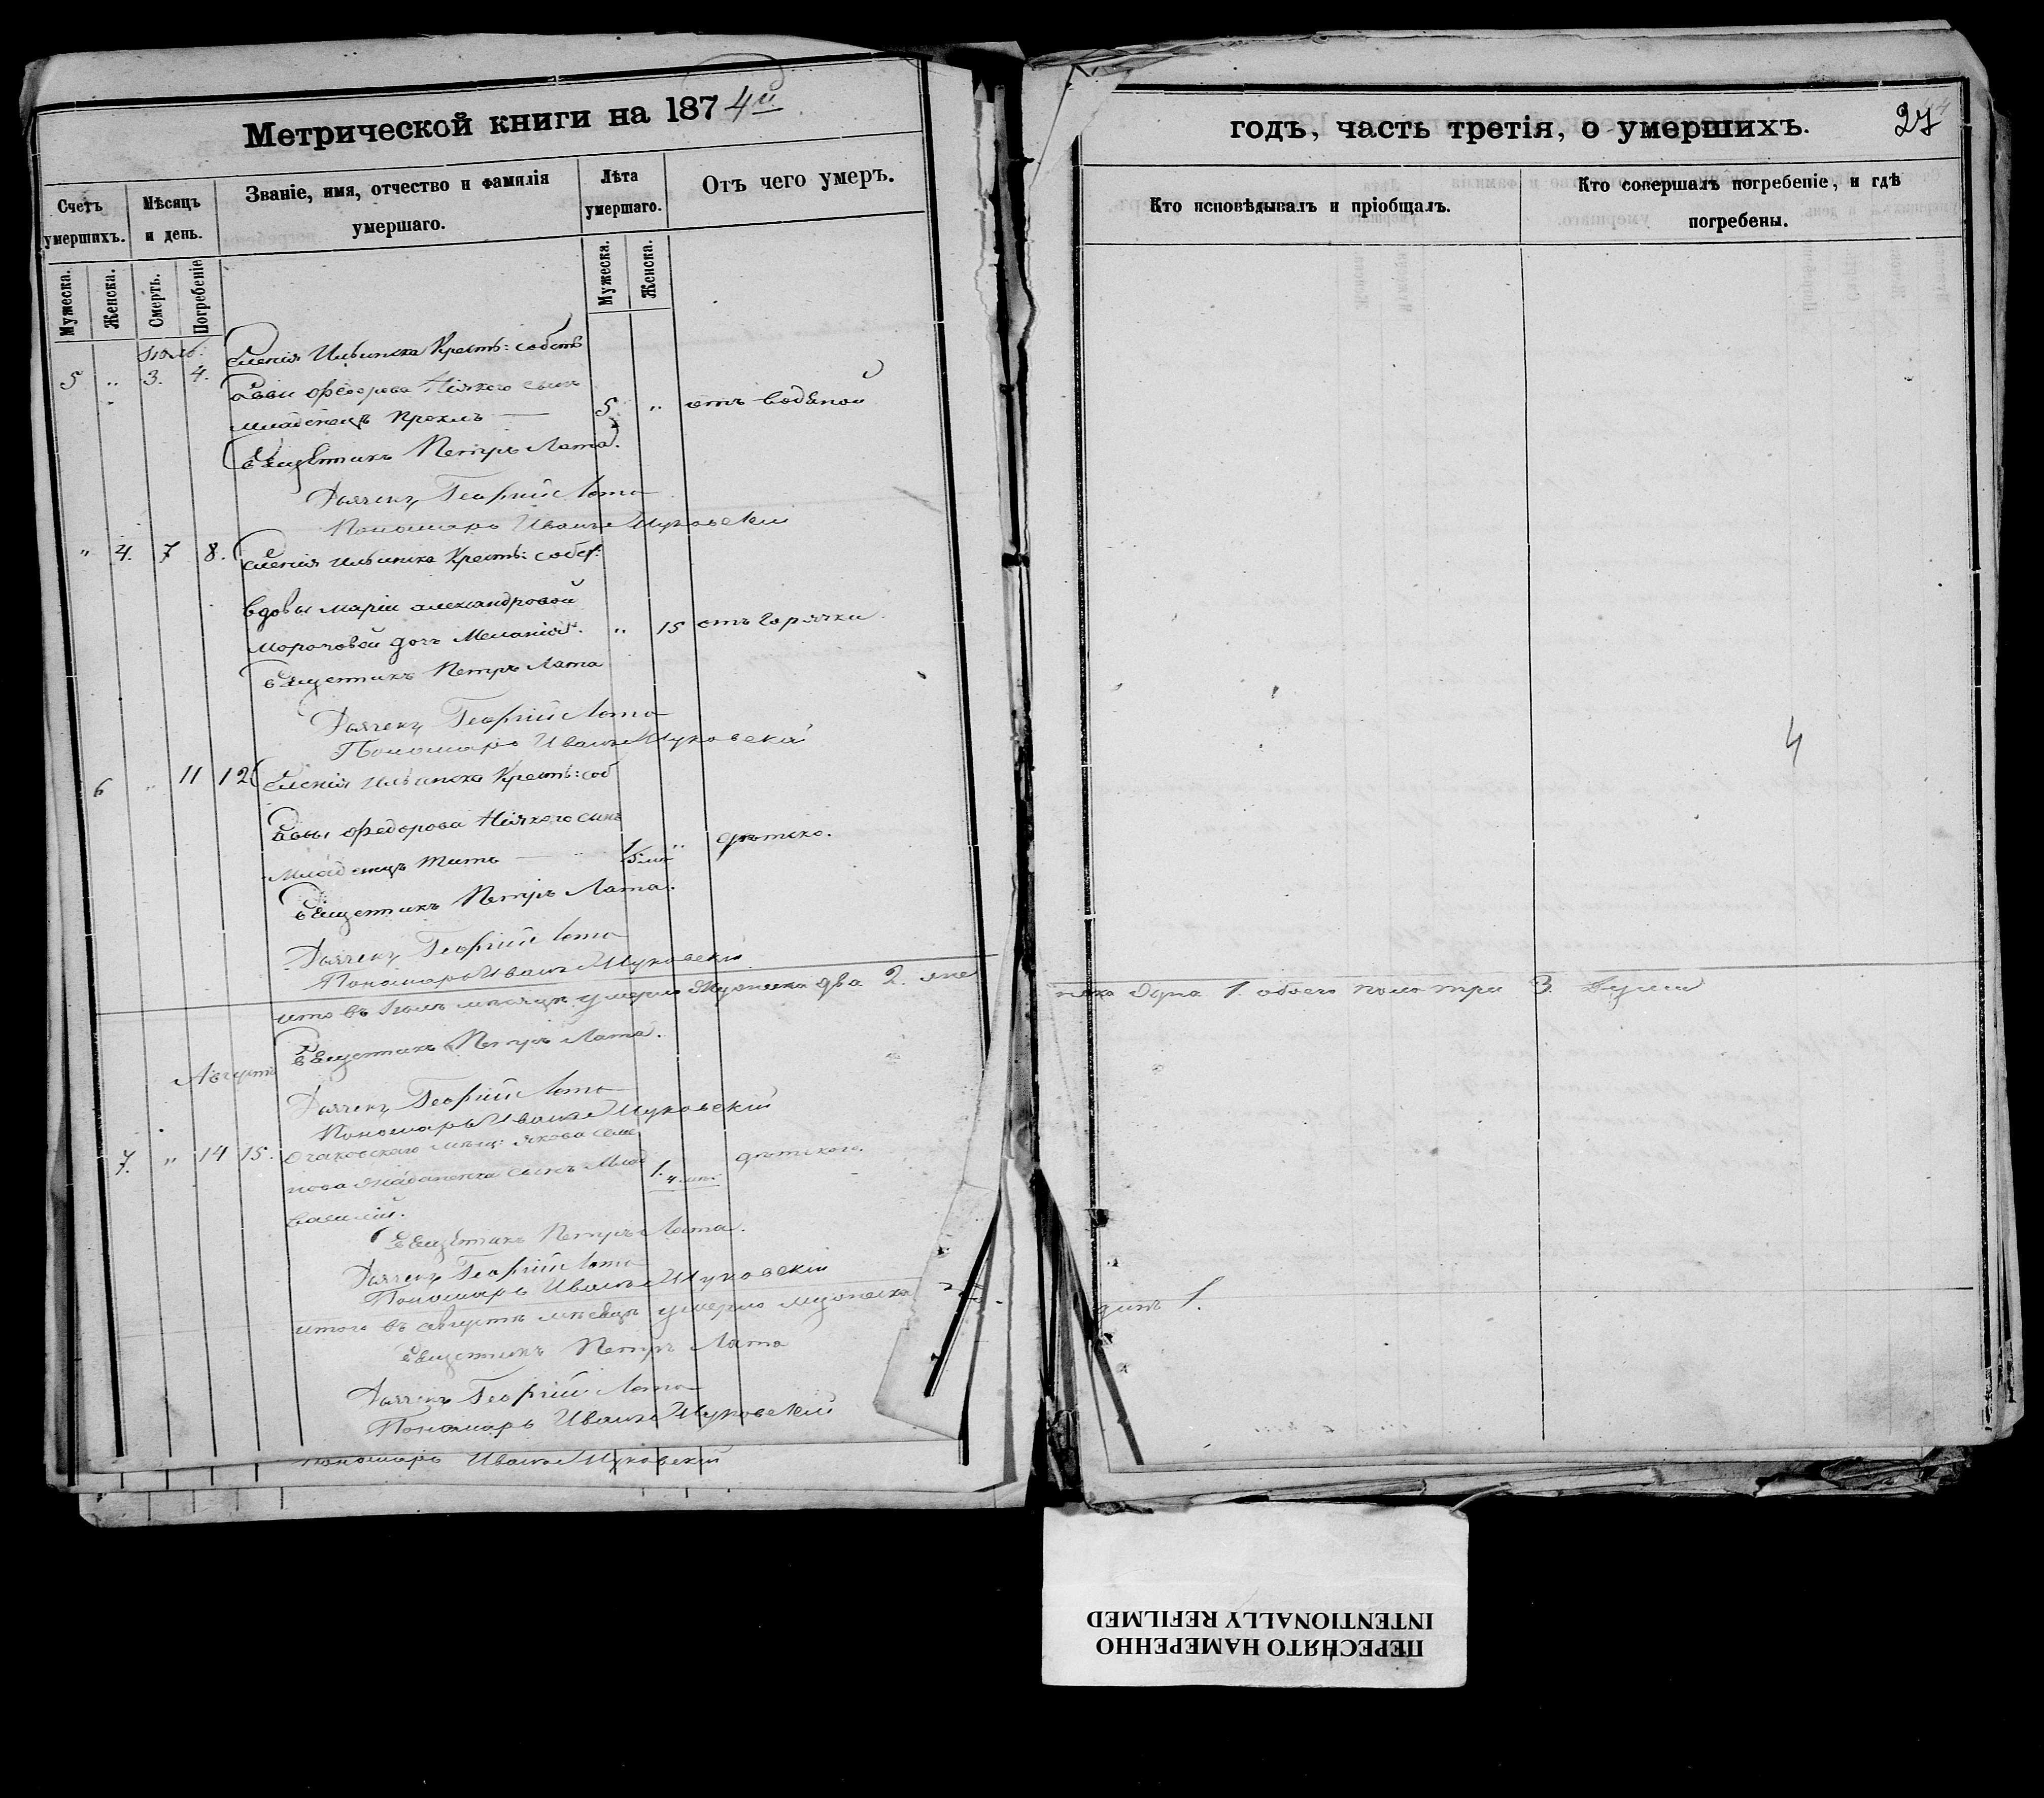 Метрической книги на 1874й
Счетъ умершихъ.
Мѣсяцъ и день.
Званіе, имя, отчество и фамилія умершаго.
Лѣта умершаго.
Отъ чего умеръ.
Мужеска.
Женска.
Смерть.
Погребеніе
Мужеска.
Женска.
Іюль.
5 " 3. 4.
Селенія Ильинска Кресть: собств
Саввы Федорова сынъ
младенецъ 5 " отъ водяной
Священникъ Петръ Лата.
Дьячекъ Георгій Лата
Пономарь Иванъ Жуковскій
" 4. 7 8. Селенія Ильинска Крестъ: собст:
вдовы Маріи Александровой
дочь Меланія. " 15 отъ горячки
Священникъ Петръ Лата
Дьячекъ Георгій Лата
Пономарь Иванъ Жуковскій
6 " 11 12 Селенія Ильинска Крестъ: соб
Саввы Федорова сынъ
Младенецъ Титъ "
Священникъ Петръ Лата.
Дьячекъ Георгій Лата
Пономарь Иванъ Жуковскій
итого въ Іюлѣ мѣсяцѣ умерло Мужеска два 2. жен
Священникъ Петръ Лата.
Августъ
Дьячекъ Георгій Лата
Пономарь Иванъ Жуковскій
7. " 14 15. Очаковскаго мѣщ: Якова Семе
нова сынъ Млад 1. дѣтскаго.
Василій.
Священникъ Петръ Лата.
Дьячекъ Георгій Лата
Пономарь Иванъ Жуковскій
итого въ Августѣ мѣсяцѣ умерло мужеска
Священникъ Петръ Лата
Дьячекъ Георгій Лата
Пономарь Иванъ Жуковскій
Пономарь Иванъ Жуковскій
годъ, часть третія, о умершихъ.
27
Кто исповѣдывалъ и пріобщалъ.
Кто совершалъ погребеніе, и гдѣ погребены.
4
одна 1. обоего пола три 3. души
динъ 1.
ПЕРЕСНЯТО НАМЕРЕННО
INTENTIONALLY REFILMED